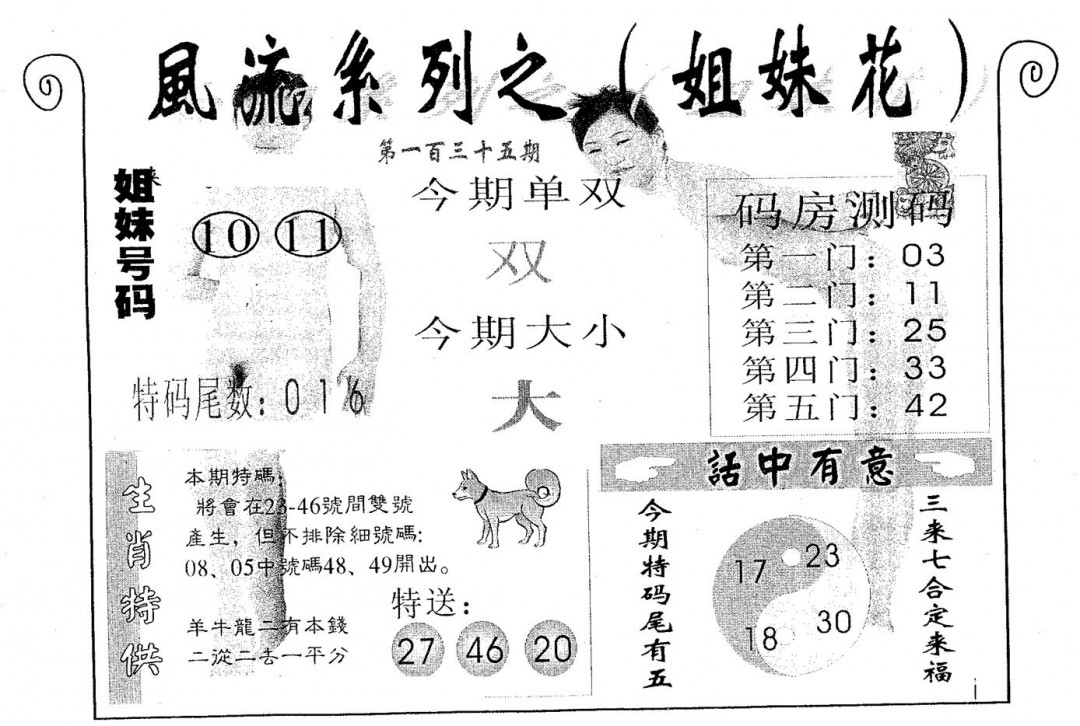 風流系列之（姐妹花）
第一百三十五期
姐妹号码
10 11
特码尾数：016
今期单双
双
今期大小
大
码房测码
第一门：03
第二门：11
第三门：25
第四门：33
第五门：42
生肖特供
本期特碼：
將會在23-46號間雙號
產生，但不排除細號碼：
08、05中號碼48、49開出。
羊牛龍二有本錢
二從二去一平分
特送：
27 46 20
話中有意
今期特码尾有五
17 23
18 30
三来七合定来福